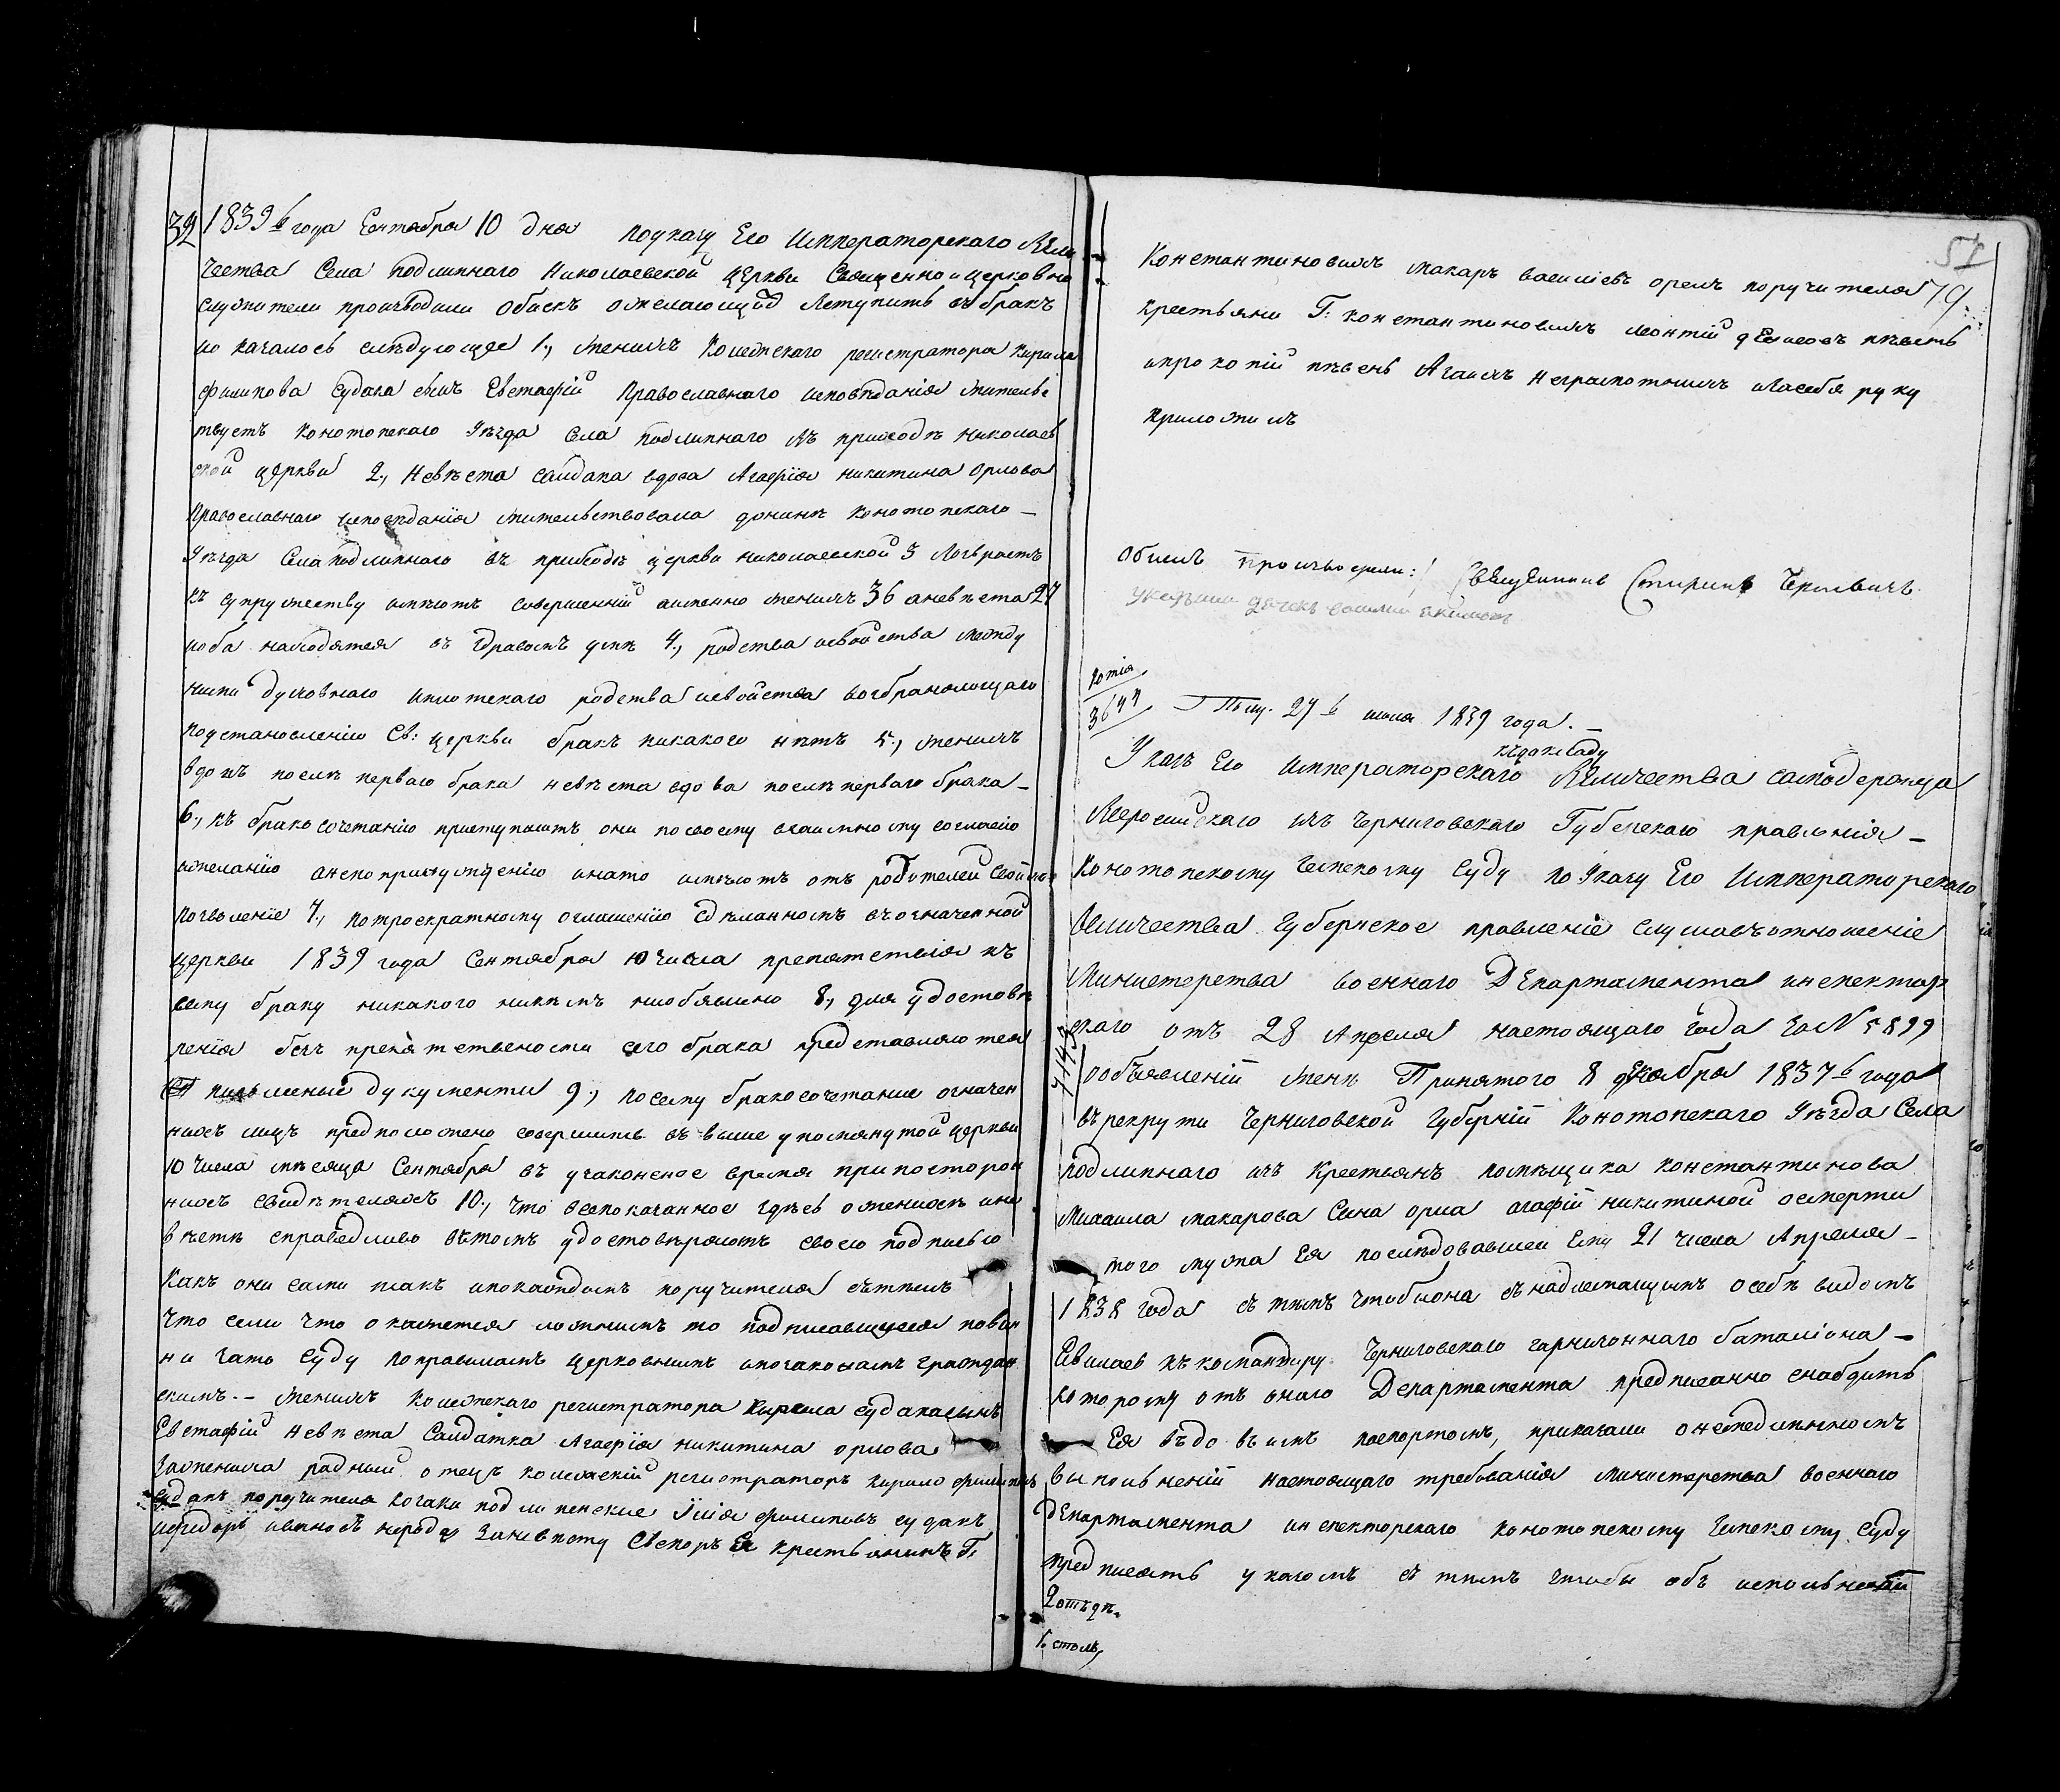 39 1839 года Сентября 10 дня по указу Его Императорскаго Вели
чества Села Подлипнаго Николаевской Церкви Священно и церковно
служители производили обыскъ о желающихъ вступить въ бракъ
и оказалось слѣдующее 1., женихъ Колежскаго регистратора Кирила
Филипова Судака сынъ Евстафій Православнаго исповѣданія жительс
твуетъ Конотопскаго Уѣзда Села Подлипнаго въ приходѣ Николаев
ской церкви 2., Невѣста салдатка вдова Агафія Никитина Орлова
Православнаго исповѣданія жительствовала донынѣ Конотопскаго
Уѣзда Села Подлипнаго въ приходѣ церкви Николаевской 3 Возрастъ
къ супружеству имѣютъ совершенній именно женихъ 36 а невѣста 27
и оба находятся въ здравомъ умѣ 4., родства и свойства между
ними духовнаго и плотскаго родства и свойства возбраняющаго
по установленію Св: церкви бракъ никакого нѣтъ 5., женихъ
вдовъ послѣ перваго брака невѣста вдова послѣ перваго брака
6., къ бракосочетанію приступаютъ они по своему взаимному согласію
и желанію а не по принужденію и на то имѣютъ отъ родителей своихъ
позволеніе 7., по троекратному оглашенію сдѣланномъ въ означенной
церкви 1839 года Сентября 10 числа препятствія къ
сему браку никакого никѣмъ не объявлено 8., для удостовѣ
ренія безъ препятственности сего брака представляются
письменные документи 9., посему бракосочетание означен
ныхъ лицъ предположено совершить въ выше упомянутой церкви
10 числа мѣсяца Сентября въ узаконеное время при посторон
нихъ свидѣтеляхъ 10., что все показанное здѣсь о женихѣ и не
вѣстѣ справедливо въ томъ удостовѣряютъ своею подписью
какъ они сами такъ и по каждомъ поручителя съ тѣмъ
что если что окажется ложнымъ то подписавшиеся повин
ни тать Суду по правиламъ церковнымъ и по законамъ граждан
скимъ.- женихъ Колежскаго регистратора Кирила Судака сынъ
Евстафій Невѣста Салдатка Агафія Никитина Орлова
за жениха родный отецъ колежскій регистраторъ Кирило Филиповъ
Судакъ поручителя козаки подлипенские Филиповъ Судакъ
за невѣсту Свекоръ Ея крестьянинъ Г:
51
Константиновыхъ Макаръ Василіевъ Орелъ поручителя 79.
крестьяни Г: Константиновыхъ Леонтій
и Прокопій а за ихъ неграмотныхъ и за себя руку
приложилъ
Обыскъ производили: Священникъ Спиридонъ
копія
3677 Получ. 27 июля 1839 года.
къ докладу
Указъ Его Императорскаго Величества Самодержца
Всероссийскаго изъ Черниговскаго Губернскаго правленія
Конотопскому Земскому Суду по Указу Его Императорскаго
Величества Губернское правленіе слушавъ отношеніе
Министерства военнаго Департамента инспектор
скаго отъ 28 Апреля настоящаго года за N 5899
7148
о объявленій женѣ Принятого 8 декабря 1837 года
въ рекрути Черниговской Губерній Конотопскаго Уѣзда Села
Подлипнаго изъ Крестьянъ помѣщика Константинова
Михаила Макарова Сина Орла Агафій Никитиной о смерти
того мужа Ея последовавшей Ему 21 числа Апреля
1838 года съ тѣмъ чтобы она съ надлежащимъ о себѣ видомъ
Евилась къ командиру Черниговскаго гарнизоннаго баталіона
которому отъ онаго Департамента предписанно снабдить
Ея вдовьимъ паспортомъ, приказали о немедлѣнномъ
выпольненій настоящаго требованія Министерства военнаго
Департамента инспекторскаго Конотопскому Земскому Суду
предписать указомъ съ тѣмъ чтобы объ исполненій
2 отъдѣ.
1. столъ,